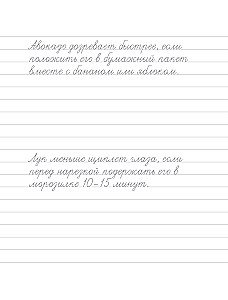 Авокадо дозревает быстрее, если
положить его в бумажный пакет
вместе с бананом или яблоком.
Лук меньше щиплет глаза, если
перед нарезкой подержать его в
морозилке 10–15 минут.